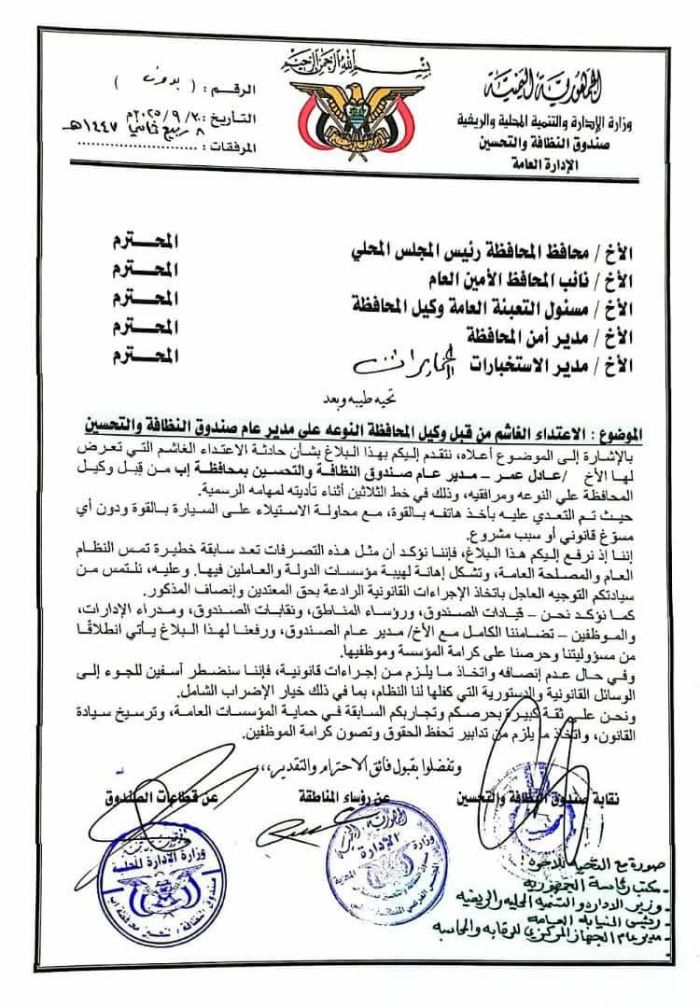 بسم الله الرحمن الرحيم
الجمهورية اليمنية
وزارة الإدارة والتنمية المحلية والريفية
صندوق النظافة والتحسين
الإدارة العامة
الرقم : ( بدون )
التاريخ : ٣٠ / ٩ / ٢٠٢٥م
٨ ربيع ثاني ١٤٤٧هـ
المرفقات :
الأخ / محافظ المحافظة رئيس المجلس المحلي المحترم
الأخ / نائب المحافظ الأمين العام المحترم
الأخ / مسئول التعبئة العامة وكيل المحافظة المحترم
الأخ / مدير أمن المحافظة المحترم
الأخ / مدير الاستخبارات المحترم
تحيه طيبه وبعد
الموضوع : الاعتداء الغاشم من قبل وكيل المحافظة النوعه على مدير عام صندوق النظافة والتحسين
بالإشارة إلى الموضوع أعلاه، نتقدم إليكم بهذا البلاغ بشأن حادثة الاعتداء الغاشم التي تعرض
لها الأخ /عادل عمر – مدير عام صندوق النظافة والتحسين بمحافظة إب من قِبل وكيل
المحافظة علي النوعه ومرافقيه، وذلك في خط الثلاثين أثناء تأديته لمهامه الرسمية.
حيث تم التعدي عليه بأخذ هاتفه بالقوة، مع محاولة الاستيلاء على السيارة بالقوة ودون أي
مسوّغ قانوني أو سبب مشروع.
إننا إذ نرفع إليكم هذا البلاغ، فإننا نؤكد أن مثل هذه التصرفات تعد سابقة خطيرة تمس النظام
العام والمصلحة العامة، وتشكل إهانة لهيبة مؤسسات الدولة والعاملين فيها. وعليه، نلتمس من
سيادتكم التوجيه العاجل باتخاذ الإجراءات القانونية الرادعة بحق المعتدين وإنصاف المذكور.
كما نؤكد نحن – قيادات الصندوق، ورؤساء المناطق، ونقابات الصندوق، ومدراء الإدارات،
والموظفين – تضامننا الكامل مع الأخ/ مدير عام الصندوق، ورفعنا لهذا البلاغ يأتي انطلاقًا
من مسؤوليتنا وحرصنا على كرامة المؤسسة وموظفيها.
وفي حال عدم إنصافه واتخاذ ما يلزم من إجراءات قانونية، فإننا سنضطر آسفين للجوء إلى
الوسائل القانونية والدستورية التي كفلها لنا النظام، بما في ذلك خيار الإضراب الشامل.
ونحن على ثقة كبيرة بحرصكم وتجاربكم السابقة في حماية المؤسسات العامة، وترسيخ سيادة
القانون، واتخاذ ما يلزم من تدابير تحفظ الحقوق وتصون كرامة الموظفين.
وتفضلوا بقبول فائق الاحترام والتقدير،،،
نقابة صندوق النظافة والتحسين
عن رؤساء المناطقة
عن قطاعات الصندوق
صورة مع التحية للاخوة
- مكتب رئاسة الجمهورية
- وزير الاداره والتنميه المحليه والريفيه
- رئيس النيابه العامه
- مدير عام الجهاز المركزي للرقابه والمحاسبه
وزارة الإدارة المحلية